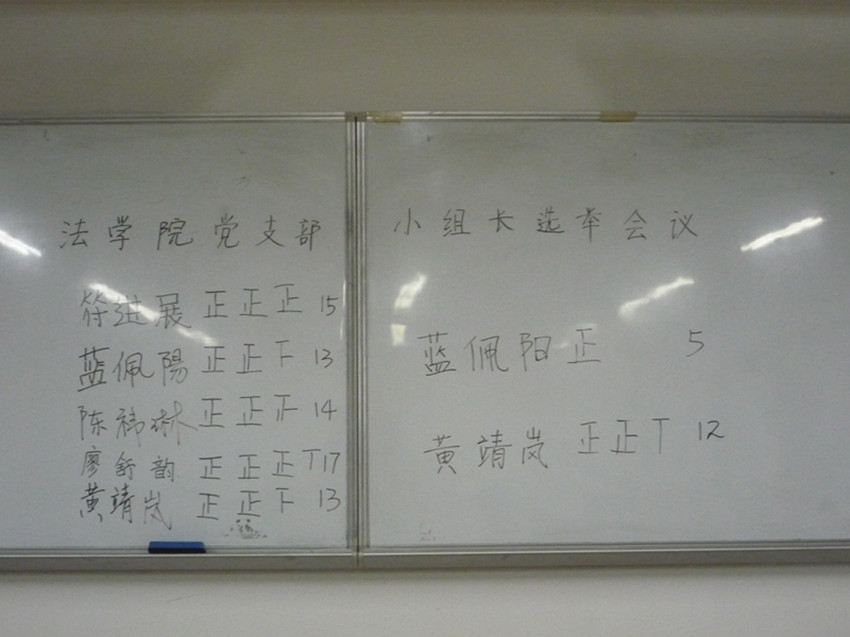 法学院党支部
符进展 正正正 15
蓝佩陽 正正下 13
陈祎琳 正正 14
廖舒韵 正正正丅 17
黄靖岚 正正下 13
小组长选举会议
蓝佩阳 正 5
黄靖岚 正正丅 12